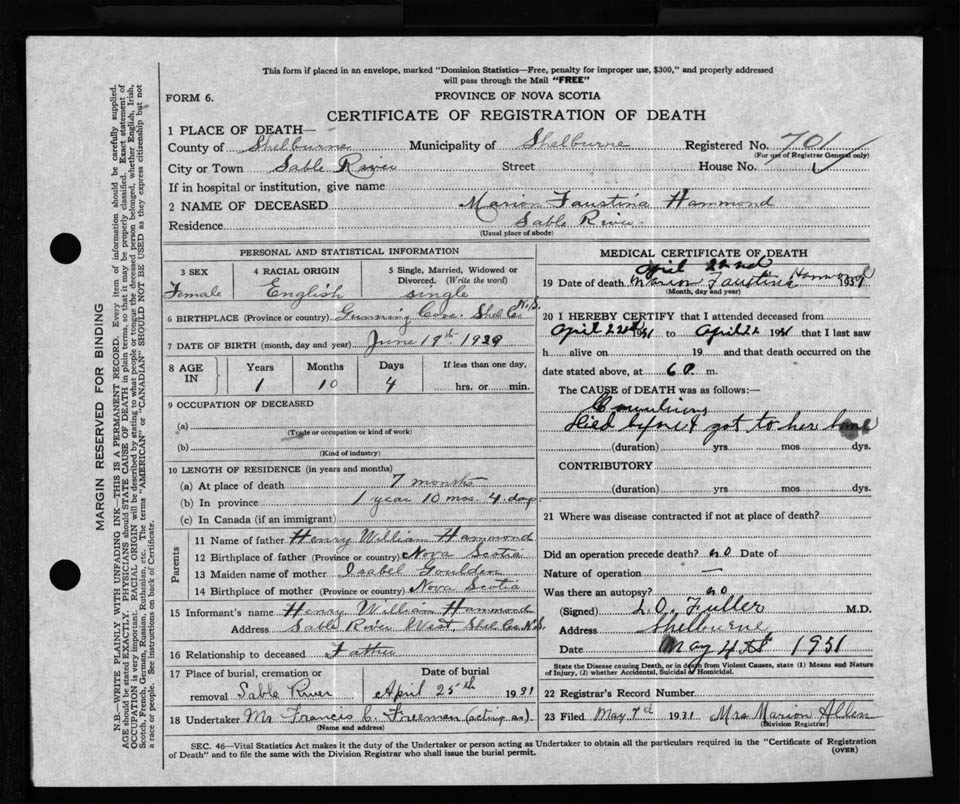 This form if placed in an envelope, marked "Dominion Statistics—Free, penalty for improper use, $300," and properly addressed
will pass through the Mail "FREE"
FORM 6.
PROVINCE OF NOVA SCOTIA
CERTIFICATE OF REGISTRATION OF DEATH
1 PLACE OF DEATH—
County of Shelburne Municipality of Shelburne Registered No. 701
(For use of Registrar General only)
City or Town Sable River Street House No.
If in hospital or institution, give name
2 NAME OF DECEASED Marion Faustina Hammond
Residence Sable River.
(Usual place of abode)
PERSONAL AND STATISTICAL INFORMATION
3 SEX
Female
4 RACIAL ORIGIN
English
5 Single, Married, Widowed or
Divorced. (Write the word)
single
6 BIRTHPLACE (Province or country) Gunning Cove Shel Co N.S.
7 DATE OF BIRTH (month, day and year) June 19th 1929
8 AGE IN
Years Months Days If less than one day,
1 10 4 hrs. or min.
9 OCCUPATION OF DECEASED
(a)
(Trade or occupation or kind of work)
(b)
(Kind of industry)
10 LENGTH OF RESIDENCE (in years and months)
(a) At place of death 7 months
(b) In province 1 year 10 mos. 4 days
(c) In Canada (if an immigrant)
Parents
11 Name of father Henry William Hammond
12 Birthplace of father (Province or country) Nova Scotia
13 Maiden name of mother Isabel Goulden
14 Birthplace of mother (Province or country) Nova Scotia
15 Informant's name Henry William Hammond
Address Sable River West, Shel Co N.S.
16 Relationship to deceased Father
17 Place of burial, cremation or Date of burial
removal Sable River April 25th 1931
18 Undertaker Mr Francis C. Freeman (acting as)
(Name and address)
MEDICAL CERTIFICATE OF DEATH
April 22nd
19 Date of death Marion Faustina Hammond 1931
(Month, day and year)
20 I HEREBY CERTIFY that I attended deceased from
April 22nd 1931 to April 22 1931 that I last saw
h alive on 19 and that death occurred on the
date stated above, at 6 P. m.
The CAUSE of DEATH was as follows:—
Died before I got to her home
(duration) yrs mos dys.
CONTRIBUTORY
(duration) yrs mos dys.
21 Where was disease contracted if not at place of death?
Did an operation precede death? no Date of
Nature of operation —
Was there an autopsy? no
(Signed) L.O. Fuller M.D.
Address Shelburne
Date May 4th 1931
State the Disease causing Death, or in death from Violent Causes, state (1) Means and Nature
of Injury, (2) whether Accidental, Suicidal or Homicidal.
22 Registrar's Record Number
23 Filed May 7d 1931 Mrs Marion Allen
(Division Registrar)
SEC. 46—Vital Statistics Act makes it the duty of the Undertaker or person acting as Undertaker to obtain all the particulars required in the "Certificate of Registration
of Death" and to file the same with the Division Registrar who shall issue the burial permit.
(OVER)
MARGIN RESERVED FOR BINDING
N.B.—WRITE PLAINLY WITH UNFADING INK—THIS IS A PERMANENT RECORD. Every item of information should be carefully supplied.
AGE should be stated EXACTLY. PHYSICIANS should STATE CAUSE OF DEATH in plain terms, so that it may be properly classified. Exact statement of
OCCUPATION is very important. RACIAL ORIGIN will be described by stating to what people or tongue the deceased person belonged, whether English, Irish,
Scotch, French, German, Russian, Ruthenian, etc. The terms "AMERICAN" or "CANADIAN" SHOULD NOT BE USED as they express citizenship but not
a race or people. See instructions on back of Certificate.